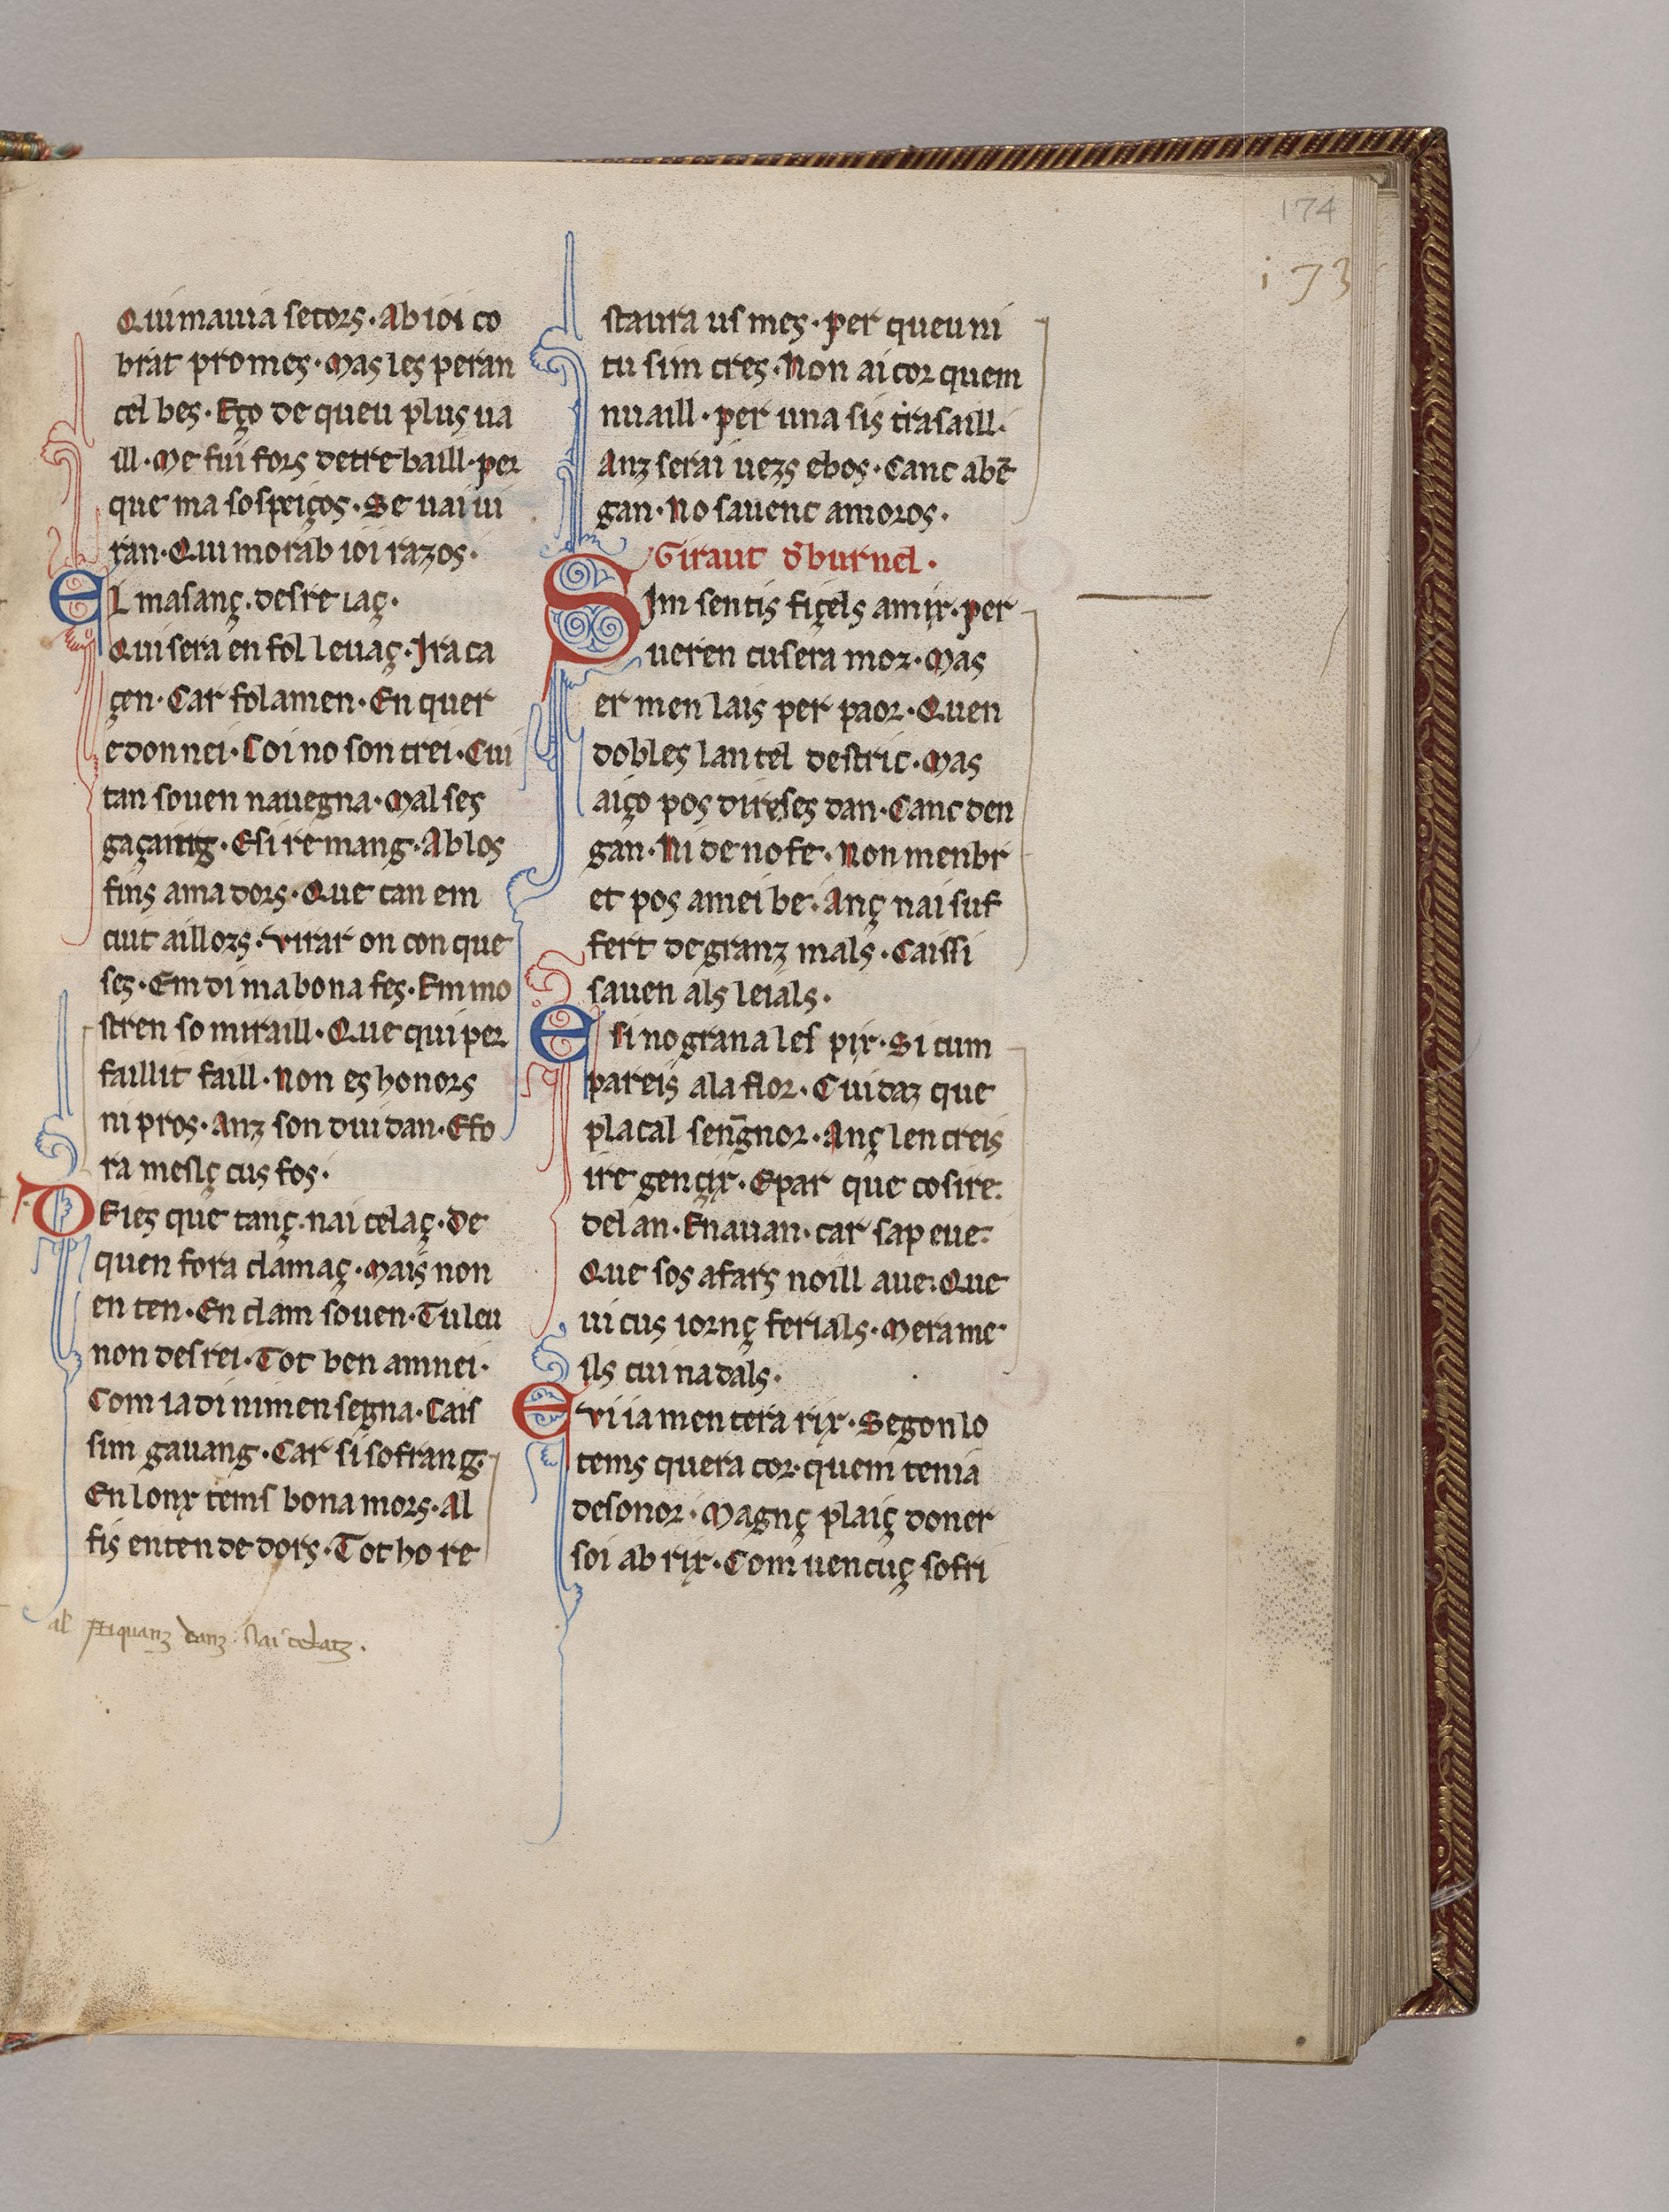 174
i73
Quimauia secors · Ab ioi co
brat promes · Mas les peran
cel bes · Eço de queu plus ua
ill · Me fui fors detre baill · per
que ma sospeiços · Se uai ui
ran · Qui morab ioi razos ·
EL masanç · desre iaç ·
Qui sera en fol leuaç · Ira ca
çen · Car folamen · En quer
e don nei · Loi no son trei · Cui
tan souen nauegna · Mal ses
gaçaing · E si re mang · Ab los
fins ama dors · Que tan em
cut aillors · Virar on con que
ses · Em di ma bona fes · Em mo
stren so miraill · Que qui per
faillit faill · Non es honors
ni pros · Anz son dui dan · E fo
ra meslç cus fos ·
DEies que tanç · nai celaç · De
quen fora clamaç · Mais non
en ten · En clam souen · Tuleu
non desrei · Tot ben amnei ·
Com ia di nimen segna · Cais
sim gauang · Car si sofrang ·
En lonx tems bonamors · Al
fis enten de dors · Tot ho re
al ꝑciquanz danz · nai celatz .
staura us mes · per queu ni
tu sim cres · Non ai cor quem
nuaill · per una sis trasaill ·
Anz serai uezs ebos · Canc abē
gan · No sauenc amoros ·
Giraut d'burnel ·
SIm sentis fiçels amix · per
ueren cusera mor · Mas
er men lais per paor · Quen
dobles lan cel destric · Mas
aiço pos direses dan · Canc den
gan · Ni de no fe · Non menbr
et pos amei be · Anç nai suf
fert de granz mals · Caissi
sauen als leials ·
E si no grana les pix · Si cum
pareis ala flor · Cuidaz que
placal sengnor · Anç len creis
ire gençix · E par que cosire ·
del an · Enauan · car sap eue ·
Que sos afars noill aue · Que
ui cus iornç ferials · Mera me
ils cui nadals ·
EVi ia men tera rix · Segon lo
tems quera cor · quem tenia
desonor · Magnç plaiç doner
soi ab rix · Com uencuç sofri